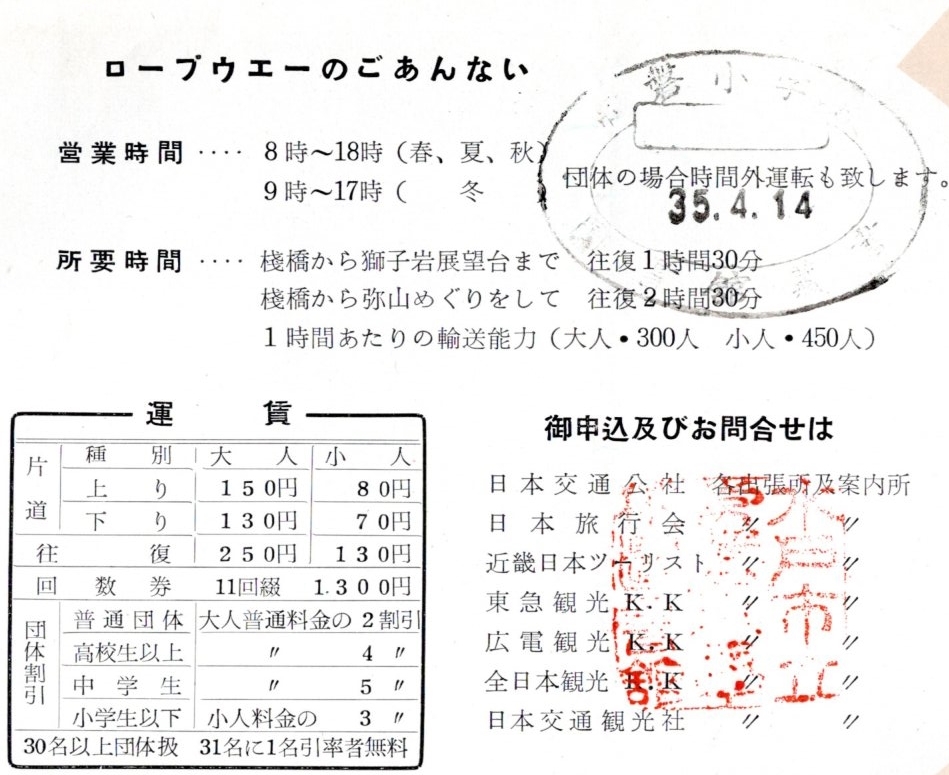 ロープウエーのごあんない
営業時間 ‥‥ 8時～18時（春、夏、秋）
9時～17時（　　冬
団体の場合時間外運転も致します。
35.4.14
所要時間 ‥‥ 棧橋から獅子岩展望台まで　往復1時間30分
棧橋から弥山めぐりをして　往復2時間30分
1時間あたりの輸送能力（大人・300人　小人・450人）
運　賃
片道　種別　大人　小人
上り　150円　80円
下り　130円　70円
往復　250円　130円
回数券　11回綴　1.300円
団体割引　普通団体　大人普通料金の2割引
高校生以上　〃　4〃
中学生　〃　5〃
小学生以下　小人料金の　3〃
30名以上団体扱　31名に1名引率者無料
御申込及びお問合せは
日本交通公社　各出張所及案内所
日本旅行会　〃　〃
近畿日本ツーリスト　〃　〃
東急観光K.K　〃　〃
広電観光K.K　〃　〃
全日本観光K.K　〃　〃
日本交通観光社　〃　〃
水戸市立